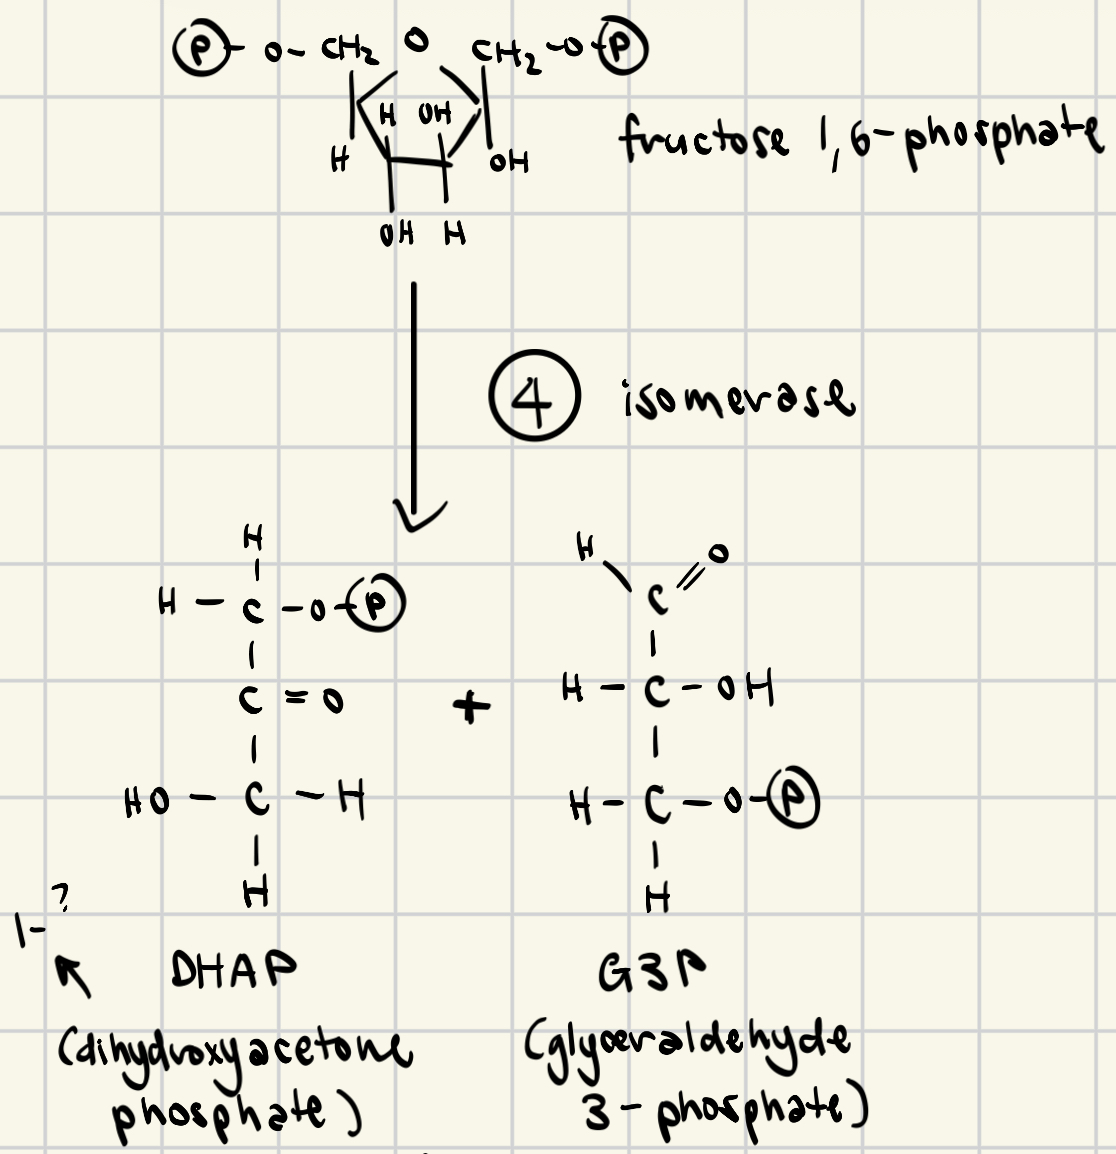 P - O - CH₂ O CH₂ - O - P
H OH
H OH
OH H
fructose 1,6-phosphate
4 isomerase
H
H - C - O - P
C = O
HO - C - H
H
+
H O
C
H - C - OH
H - C - O - P
H
1-?
DHAP
(dihydroxyacetone
phosphate)
G3P
(glyceraldehyde
3-phosphate)